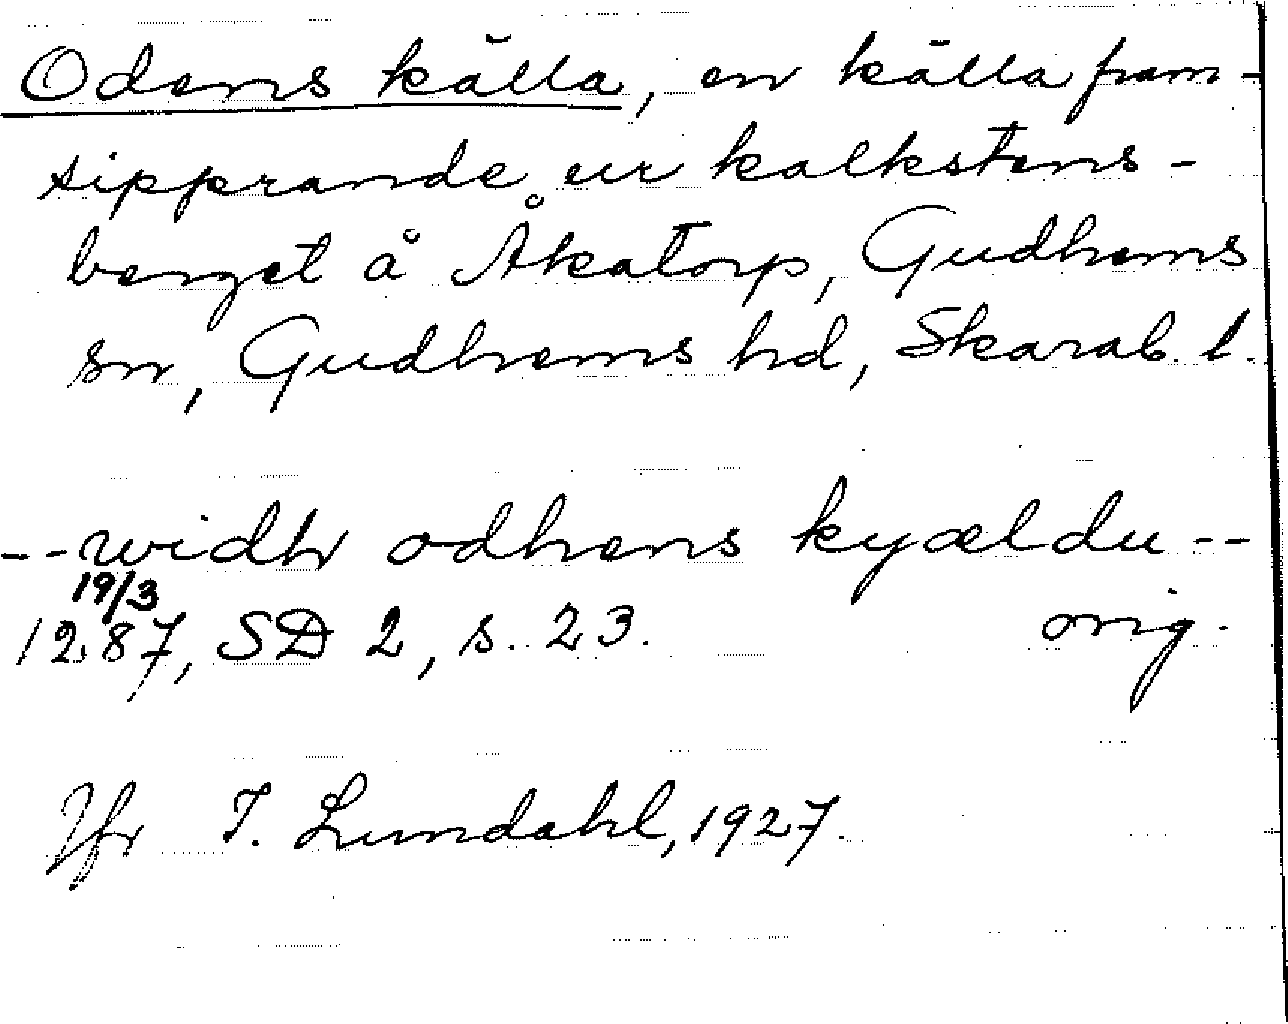 Odens källa, en källa fram-
sipprande ur kalkstens-
berget å Åkatorp, Gudhems
sn, Gudhems hd, Skarab. l.
-- widh odhens kyældu --
19/3
1287, SD 2, s. 23. orig.
Jfr I. Lundahl, 1927.